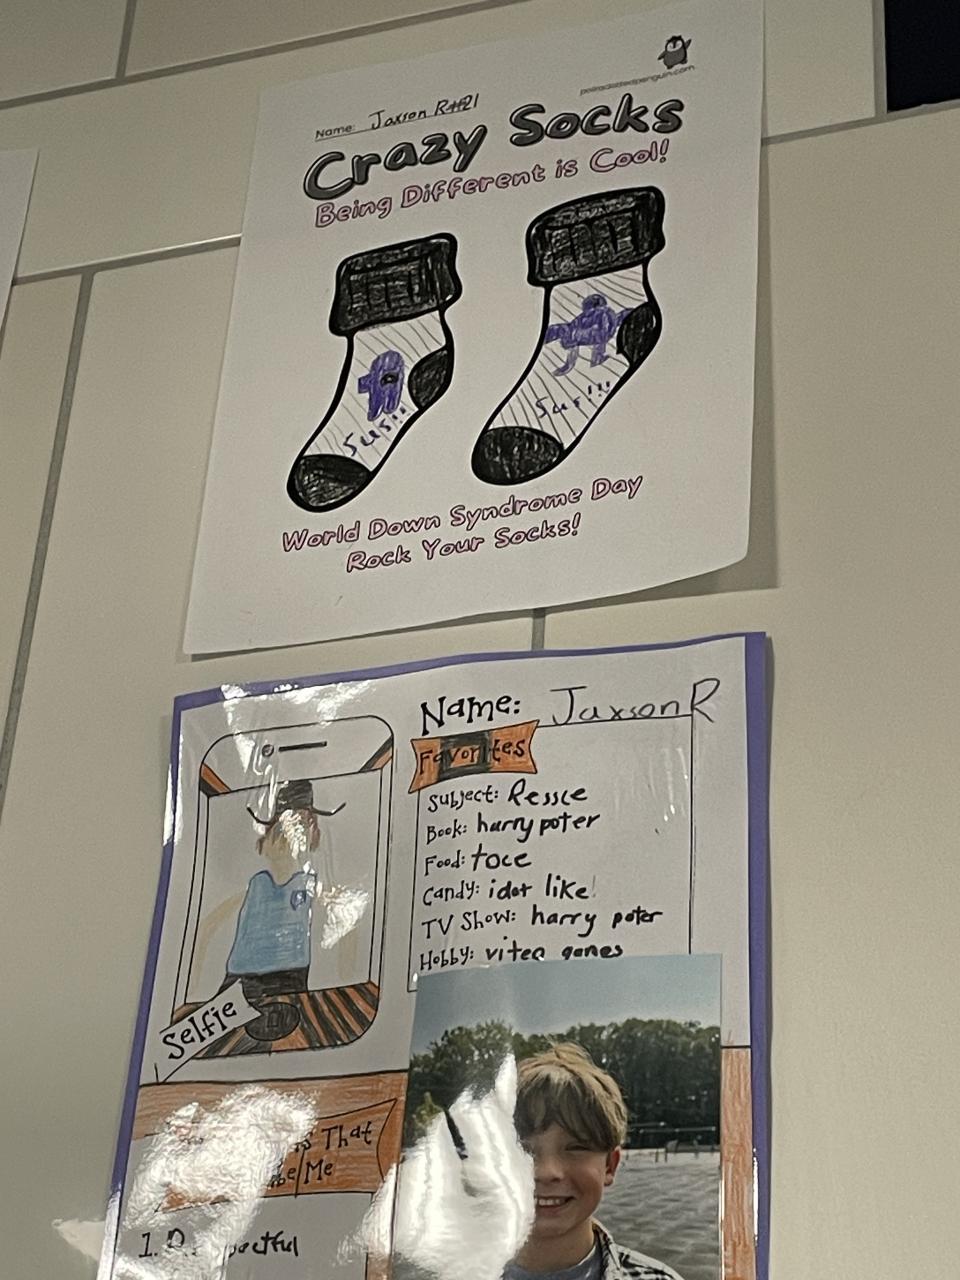 polkadottedpenguin.com
Name: Jaxson R#21
Crazy Socks
Being Different is Cool!
Sus!!
Sus!!!
World Down Syndrome Day
Rock Your Socks!
Name: Jaxson R
Favorites
Subject: Ressce
Book: harry poter
Food: toce
Candy: idot like!
TV Show: harry poter
Hobby: viteo games
Selfie
That
Me
1.